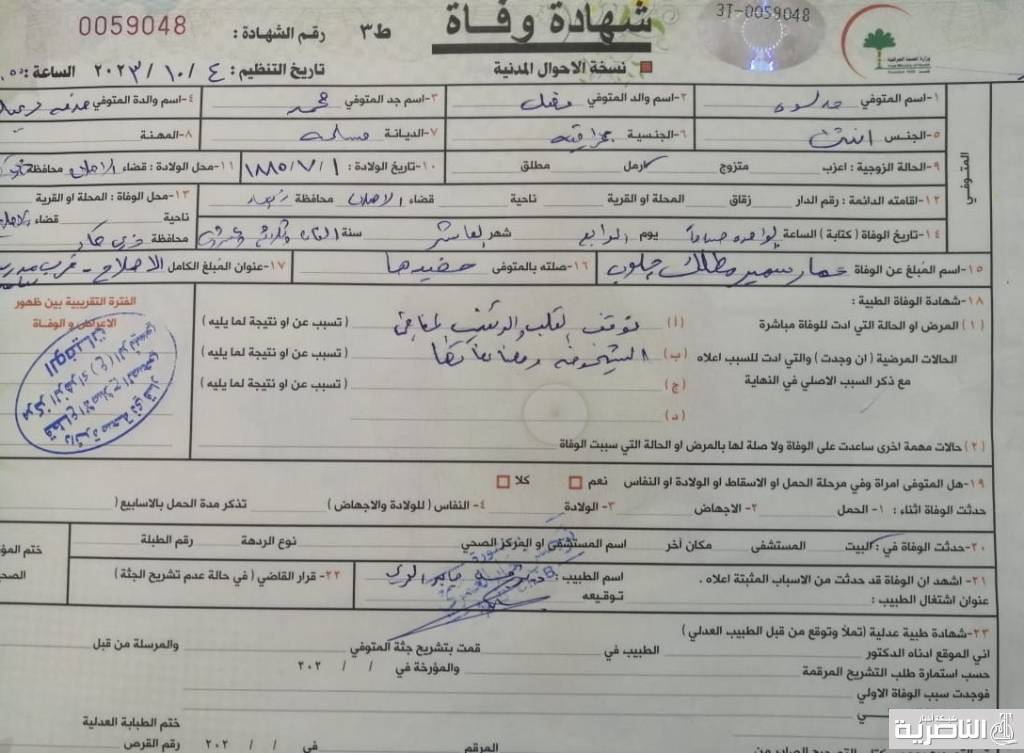 0059048
رقم الشهادة :
ط٣
شهادة وفاة
3T-0059048
نسخة الاحوال المدنية
تاريخ التنظيم : ٤ / ١٠ / ٢٠٢٣ الساعة :
١-اسم المتوفي
٢-اسم والد المتوفي
٣-اسم جد المتوفي محمد
٤-اسم والدة المتوفي
٥-الجنس انثى
٦-الجنسية عراقية
٧-الديانة مسلمة
٨-المهنة
المتوفي
٩-الحالة الزوجية : اعزب متزوج ارمل مطلق
١٠-تاريخ الولادة : ١٨٨٥/٧/١
١١-محل الولادة : قضاء الاصلاح محافظة
١٢-اقامته الدائمة : رقم الدار زقاق المحلة او القرية ناحية قضاء الاصلاح محافظة ذي قار
١٣-محل الوفاة : المحلة او القرية
ناحية قضاء الاصلاح
محافظة ذي قار
١٤-تاريخ الوفاة ( كتابة ) الساعة الواحدة صباحا يوم الرابع شهر العاشر سنة الفان وثلاثة وعشرون
١٥-اسم المُبلغ عن الوفاة عمار سمير مطلك چلوب
١٦-صلته بالمتوفي حفيدها
١٧-عنوان المُبلغ الكامل الاصلاح - قرب مدرسة
١٨-شهادة الوفاة الطبية :
( ١ ) المرض او الحالة التي ادت للوفاة مباشرة
( أ ) توقف القلب والرئتين ( تسبب عن او نتيجة لما يليه )
الحالات المرضية ( ان وجدت ) والتي ادت للسبب اعلاه
( ب ) الشيخوخة ومضاعفاتها ( تسبب عن او نتيجة لما يليه )
مع ذكر السبب الاصلي في النهاية
( ج ) ( تسبب عن او نتيجة لما يليه )
( د )
الفترة التقريبية بين ظهور
الاعراض و الوفاة
دائرة صحة ذي قار
قطاع الاصلاح الصحي
الوفيات
( ٢ ) حالات مهمة اخرى ساعدت على الوفاة ولا صلة لها بالمرض او الحالة التي سببت الوفاة
١٩-هل المتوفى امراة وفي مرحلة الحمل او الاسقاط او الولادة او النفاس نعم كلا
حدثت الوفاة اثناء : ١- الحمل ٢- الاجهاض ٣- الولادة ٤- النفاس ( للولادة والاجهاض ) تذكر مدة الحمل بالاسابيع (
٢٠-حدثت الوفاة في : البيت المستشفى مكان آخر اسم المستشفى او المركز الصحي نوع الردهة رقم الطبلة
ختم
٢١- اشهد ان الوفاة قد حدثت من الاسباب المثبتة اعلاه .
اسم الطبيب :
عنوان اشتغال الطبيب :
توقيعه
٢٢- قرار القاضي ( في حالة عدم تشريح الجثة )
٢٣-شهادة طبية عدلية (تملأ وتوقع من قبل الطبيب العدلي )
اني الموقع ادناه الدكتور الطبيب في قمت بتشريح جثة المتوفي والمرسلة من قبل
حسب استمارة طلب التشريح المرقمة والمؤرخة في / / ٢٠٢
فوجدت سبب الوفاة الاولي
ختم الطبابة العدلية
المرقم في / / ٢٠٢ رقم القرص
شبكة أخبار
الناصرية